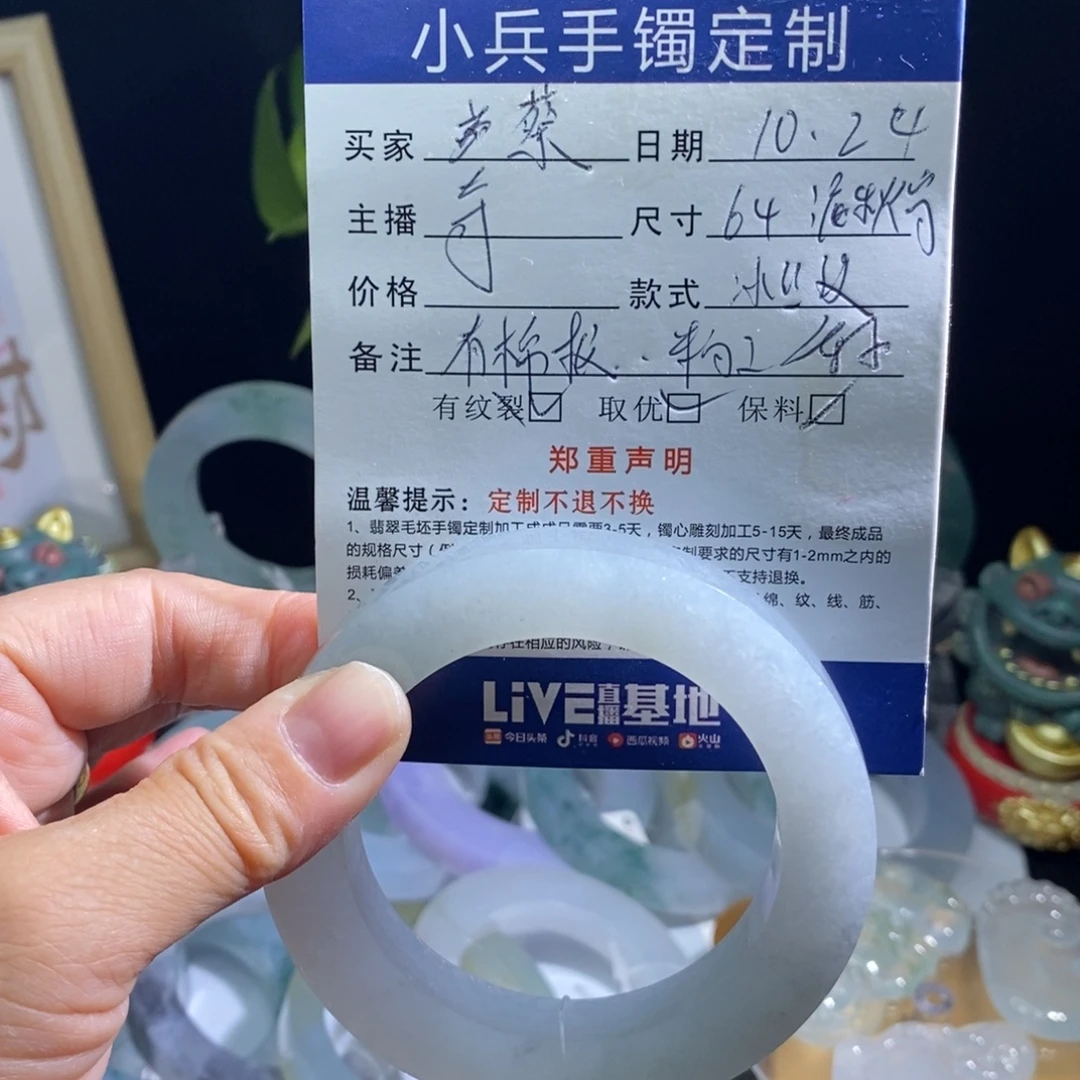 小兵手镯定制
买家 蔡 日期 10.24
主播 奇 尺寸 64
价格 款式 冰
备注 有棉
有纹裂 取优 保料
郑重声明
温馨提示：定制不退不换
1、翡翠毛坯手镯定制加工成成品需要3-5天，镯心雕刻加工5-15天，最终成品
的规格尺寸（ 制要求的尺寸有1-2mm之内的
损耗偏差 不支持退换。
2、 绵、纹、线、筋、
存在相应的风险，
LiVE直播基地
今日头条 抖音 西瓜视频 火山